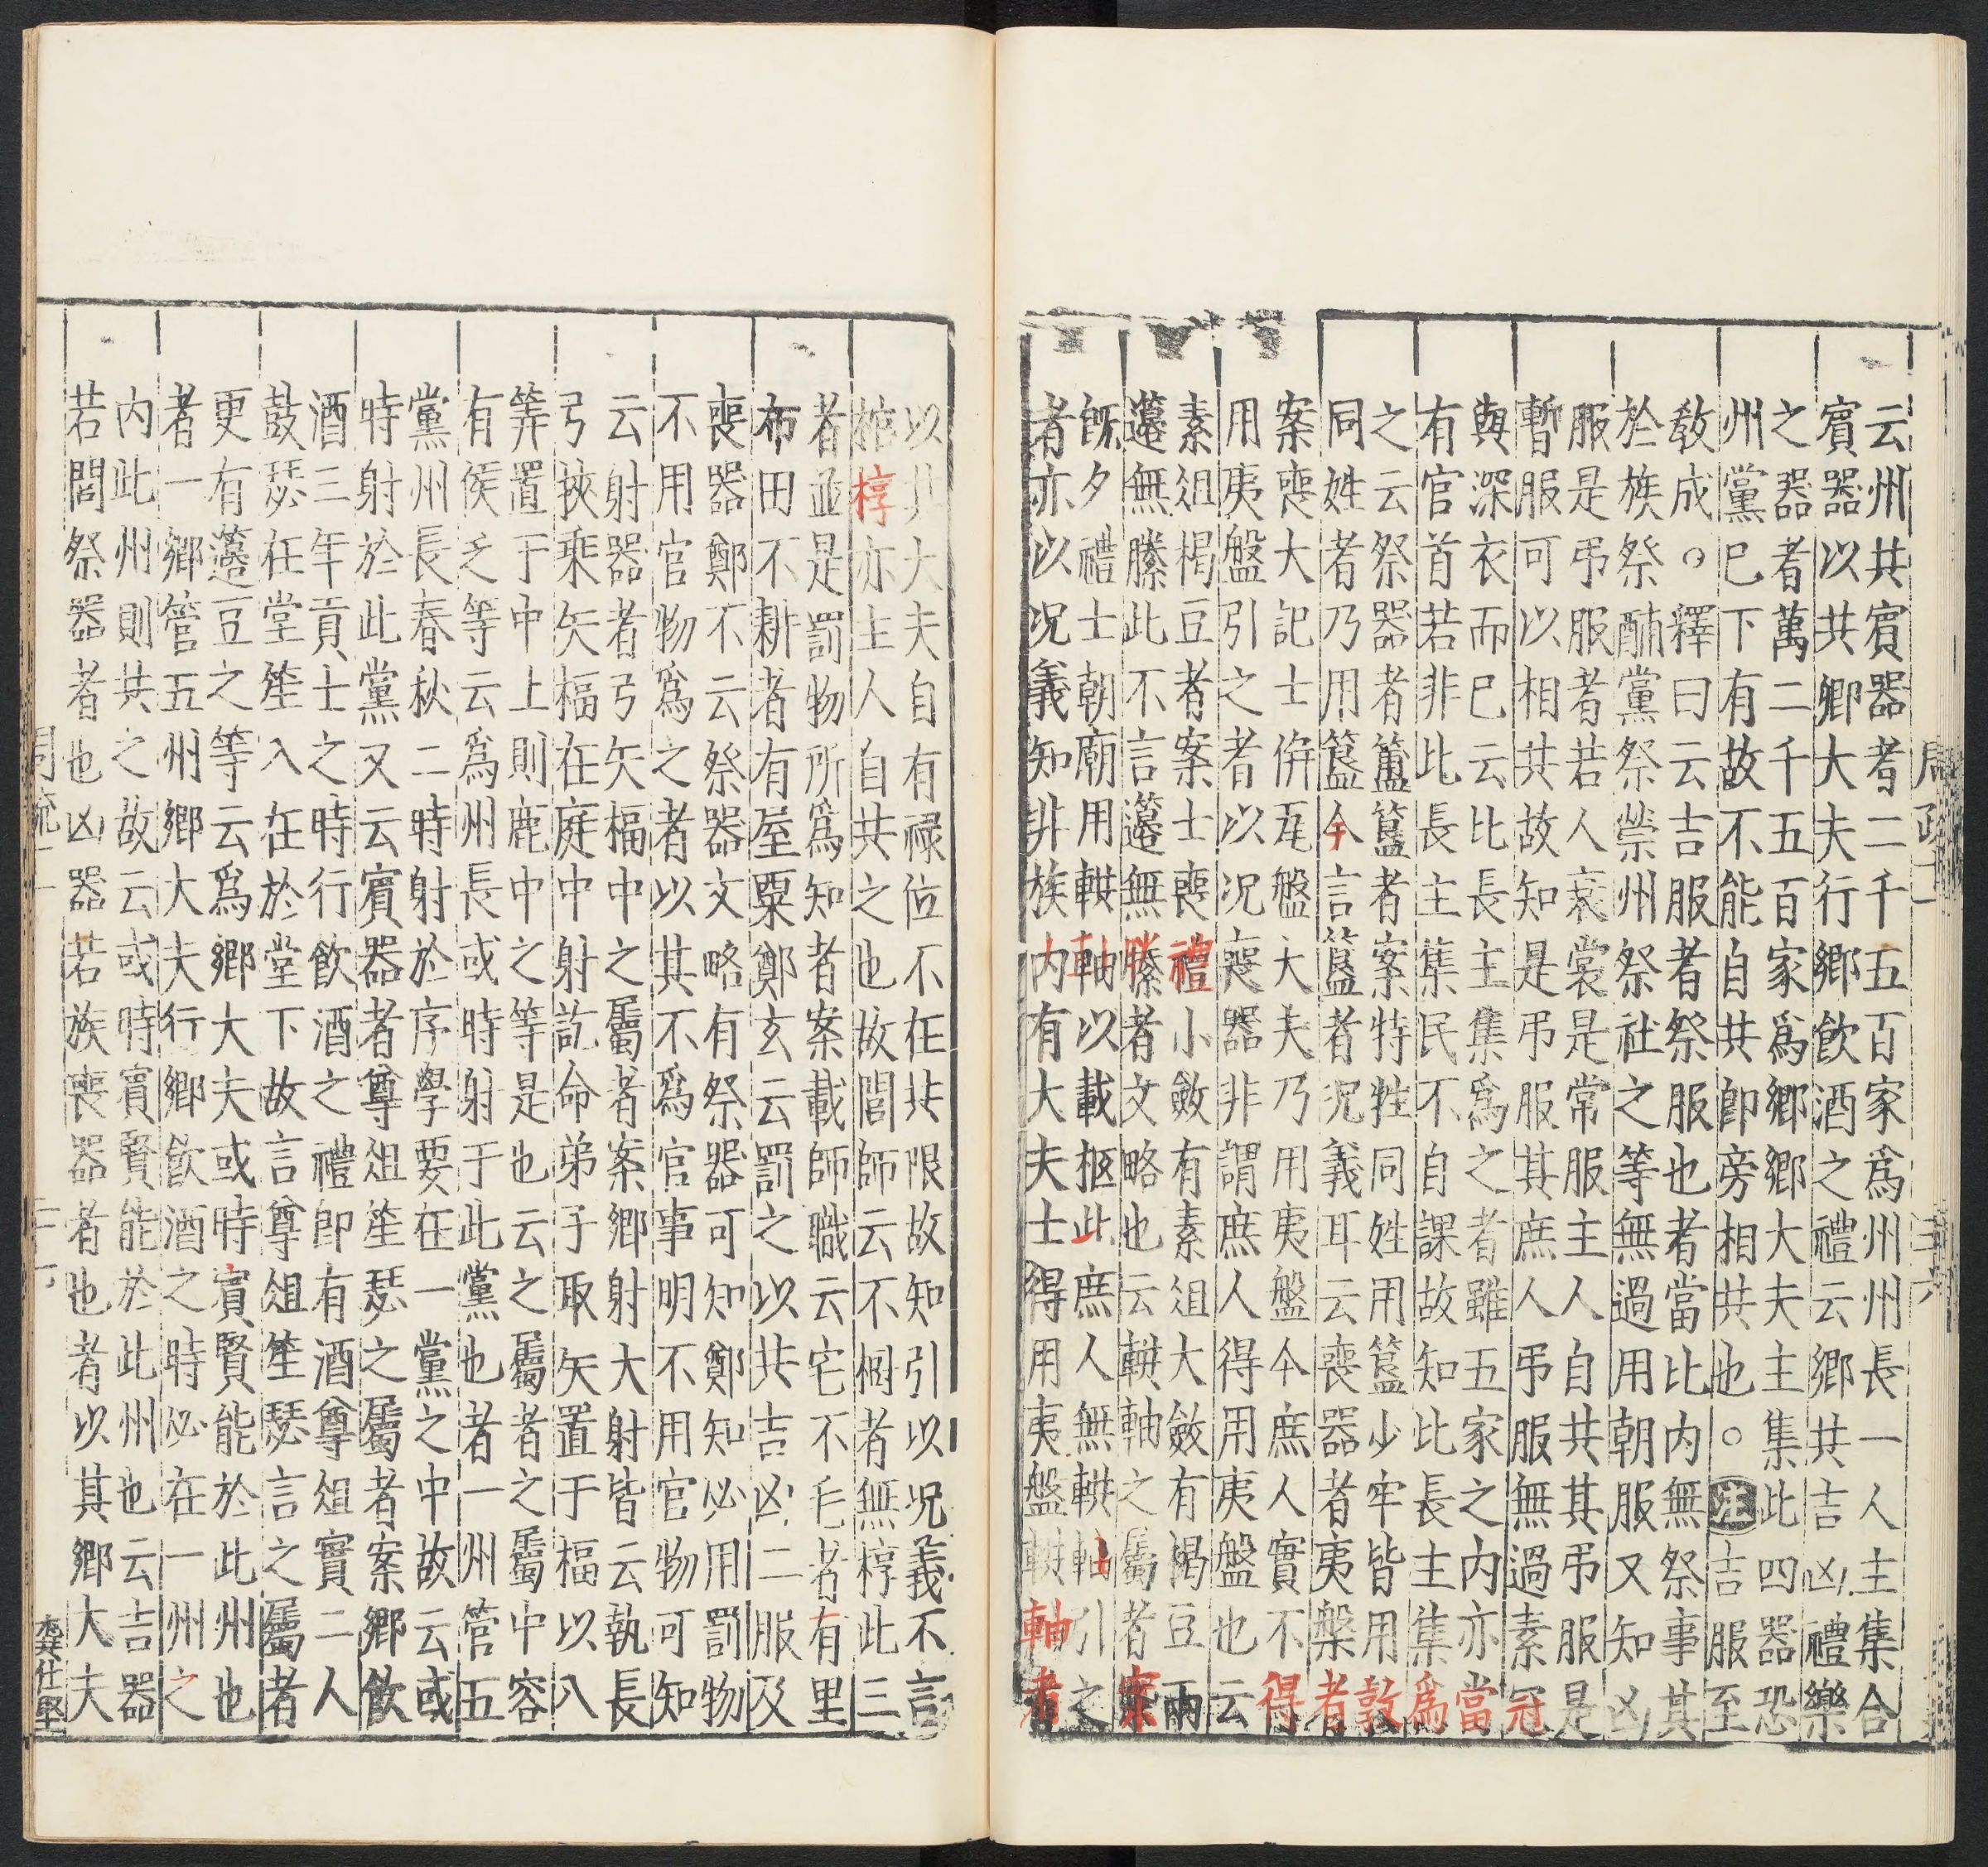 云州共賓器者二千五百家爲州州長一人主集合
賓器以共鄉大夫行鄉飲酒之禮云鄉共吉凶禮樂
之器者萬二千五百家爲鄉鄉大夫主集此四器恐
州黨巳下有故不能自共即旁相共也○注吉服至
敎成○釋曰云吉服者祭服也者當比內無祭事其
於族祭酺黨祭禜州祭社之等無過用朝服又知凶
服是弔服者若人衰裳是常服主人自共其弔服是
暫服可以相共故知是弔服其庶人弔服無過素冠
與深衣而巳云比長主集爲之者雖五家之內亦當
有官首若非此長主集民不自課故知比長主集爲
之云祭器者簠簋者案特牲同姓用簋少牢皆用敦
同姓者乃用簋今言簋者況義耳云喪器者夷槃者
案喪大記士併瓦盤大夫乃用夷盤今庶人實不得
用夷盤引之者以况喪器非謂庶人得用夷盤也云
素俎楬豆者案士喪禮小斂有素俎大斂有楬豆兩
籩無縢此不言籩無縢者文略也云輁軸之屬者案
旣夕禮士朝廟用輁軸以載柩此庶人無輁軸引之
者亦以况義知非族內有大夫士得用夷盤輁軸者
周疏十一
二十六
以其大夫自有祿位不在共限故知引以况義不言
棺椁亦主人自共之也故閭師云不樹者無椁此三
者並是罰物所爲知者案載師職云宅不毛者有里
布田不耕者有屋粟鄭玄云罰之以共吉凶二服及
喪器鄭不云祭器文略有祭器可知鄭知必用罰物
不用官物爲之者以其不爲官事明不用官物可知
云射器者弓矢楅中之屬者案鄉射大射皆云執長
弓挾乘矢楅在庭中射訖命弟子取矢置于楅以八
筭置于中上則鹿中之等是也云之屬者之屬中容
有侯乏等云爲州長或時射于此黨也者一州管五
黨州長春秋二時射於序學要在一黨之中故云或
特射於此黨又云賓器者尊俎笙瑟之屬者案鄉飲
酒三年貢士之時行飲酒之禮即有酒尊俎實二人
鼓瑟在堂笙入在於堂下故言尊俎笙瑟言之屬者
更有籩豆之等云爲鄉大夫或時賓賢能於此州也
者一鄉管五州鄉大夫行鄉飲酒之時必在一州之
內此州則共之故云或時賓賢能於此州也云吉器
若閭祭器者也凶器若族喪器者也者以其鄉大夫
周疏十一